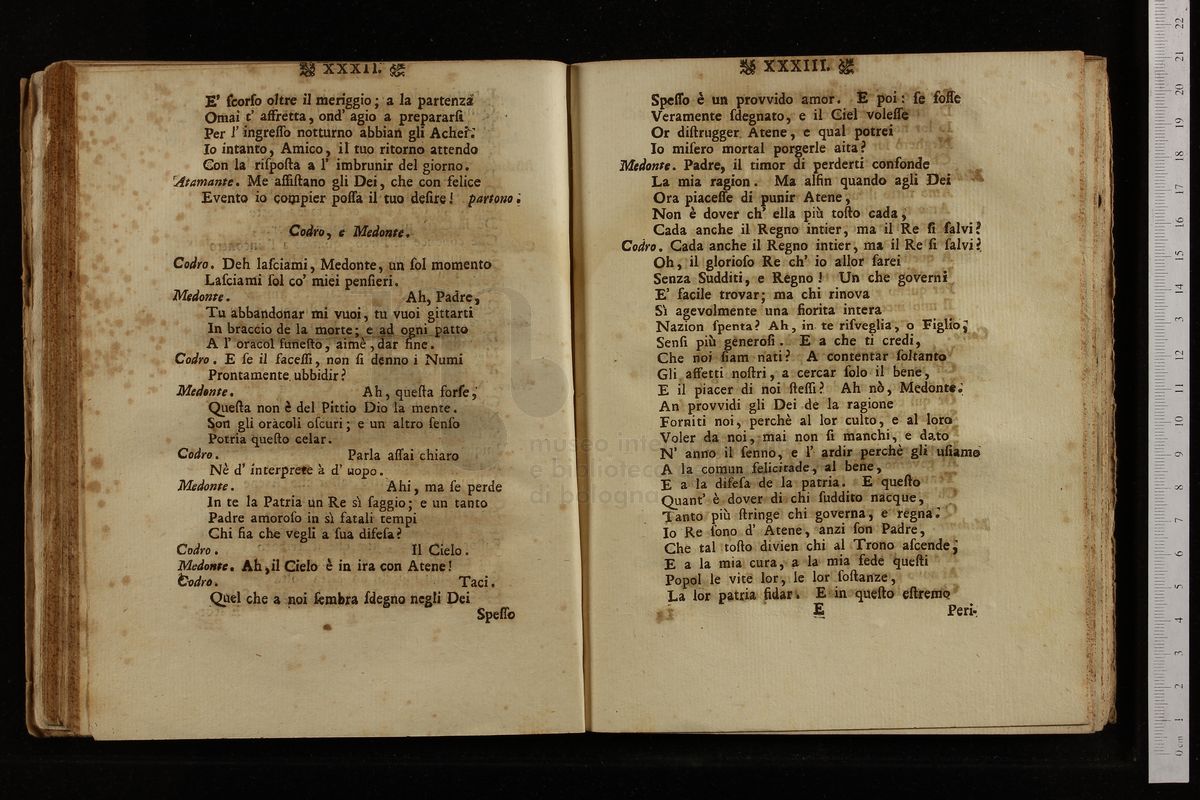 XXXII.
E' ſcorſo oltre il meriggio; a la partenza
Omai t' affretta, ond' agio a prepararſi
Per l' ingreſſo notturno abbian gli Achei.
Io intanto, Amico, il tuo ritorno attendo
Con la riſpoſta a l' imbrunir del giorno.
Atamante. Me aſſiſtano gli Dei, che con felice
Evento io compier poſſa il tuo deſire! partono.
Codro, e Medonte.
Codro. Deh laſciami, Medonte, un ſol momento
Laſciami ſol co' miei penſieri.
Medonte. Ah, Padre,
Tu abbandonar mi vuoi, tu vuoi gittarti
In braccio de la morte; e ad ogni patto
A l' oracol funeſto, aimè, dar fine.
Codro. E ſe il faceſſi, non ſi denno i Numi
Prontamente ubbidir?
Medonte. Ah, queſta forſe,
Queſta non è del Pittio Dio la mente.
Son gli oràcoli oſcuri; e un altro ſenſo
Potria queſto celar.
Codro. Parla aſſai chiaro
Nè d' interprete à d' uopo.
Medonte. Ahi, ma ſe perde
In te la Patria un Re sì ſaggio; e un tanto
Padre amoroſo in sì fatali tempi
Chi fia che vegli a ſua difeſa?
Codro. Il Cielo.
Medonte. Ah, il Cielo è in ira con Atene!
Codro. Taci.
Quel che a noi ſembra ſdegno negli Dei
Speſſo
XXXIII.
Speſſo è un provvido amor. E poi: ſe foſſe
Veramente ſdegnato, e il Ciel voleſſe
Or diſtrugger Atene, e qual potrei
Io miſero mortal porgerle aita?
Medonte. Padre, il timor di perderti confonde
La mia ragion. Ma alfin quando agli Dei
Ora piaceſſe di punir Atene,
Non è dover ch' ella più toſto cada,
Cada anche il Regno intier, ma il Re ſi ſalvi?
Codro. Cada anche il Regno intier, ma il Re ſi ſalvi?
Oh, il glorioſo Re ch' io allor ſarei
Senza Sudditi, e Regno! Un che governi
E' facile trovar; ma chi rinova
Sì agevolmente una fiorita intera
Nazion ſpenta? Ah, in te riſveglia, o Figlio,
Senſi più generoſi. E a che ti credi,
Che noi ſiam nati? A contentar ſoltanto
Gli affetti noſtri, a cercar ſolo il bene,
E il piacer di noi ſteſſi? Ah nò, Medonte.
An provvidi gli Dei de la ragione
Forniti noi, perchè al lor culto, e al loro
Voler da noi, mai non ſi manchi, e dato
N' anno il ſenno, e l' ardir perchè gli uſiamo
A la comun felicitade, al bene,
E a la difeſa de la patria. E queſto
Quant' è dover di chi ſuddito nacque,
Tanto più ſtringe chi governa, e regna.
Io Re ſono d' Atene, anzi ſon Padre,
Che tal toſto divien chi al Trono aſcende;
E a la mia cura, a la mia fede queſti
Popol le vite lor, le lor ſoſtanze,
La lor patria fidar. E in queſto eſtremo
E Peri-
museo inte
e biblioteca
di bologna
22
21
20
19
18
17
16
15
14
13
12
11
10
9
8
7
6
5
4
3
2
1
0 cm